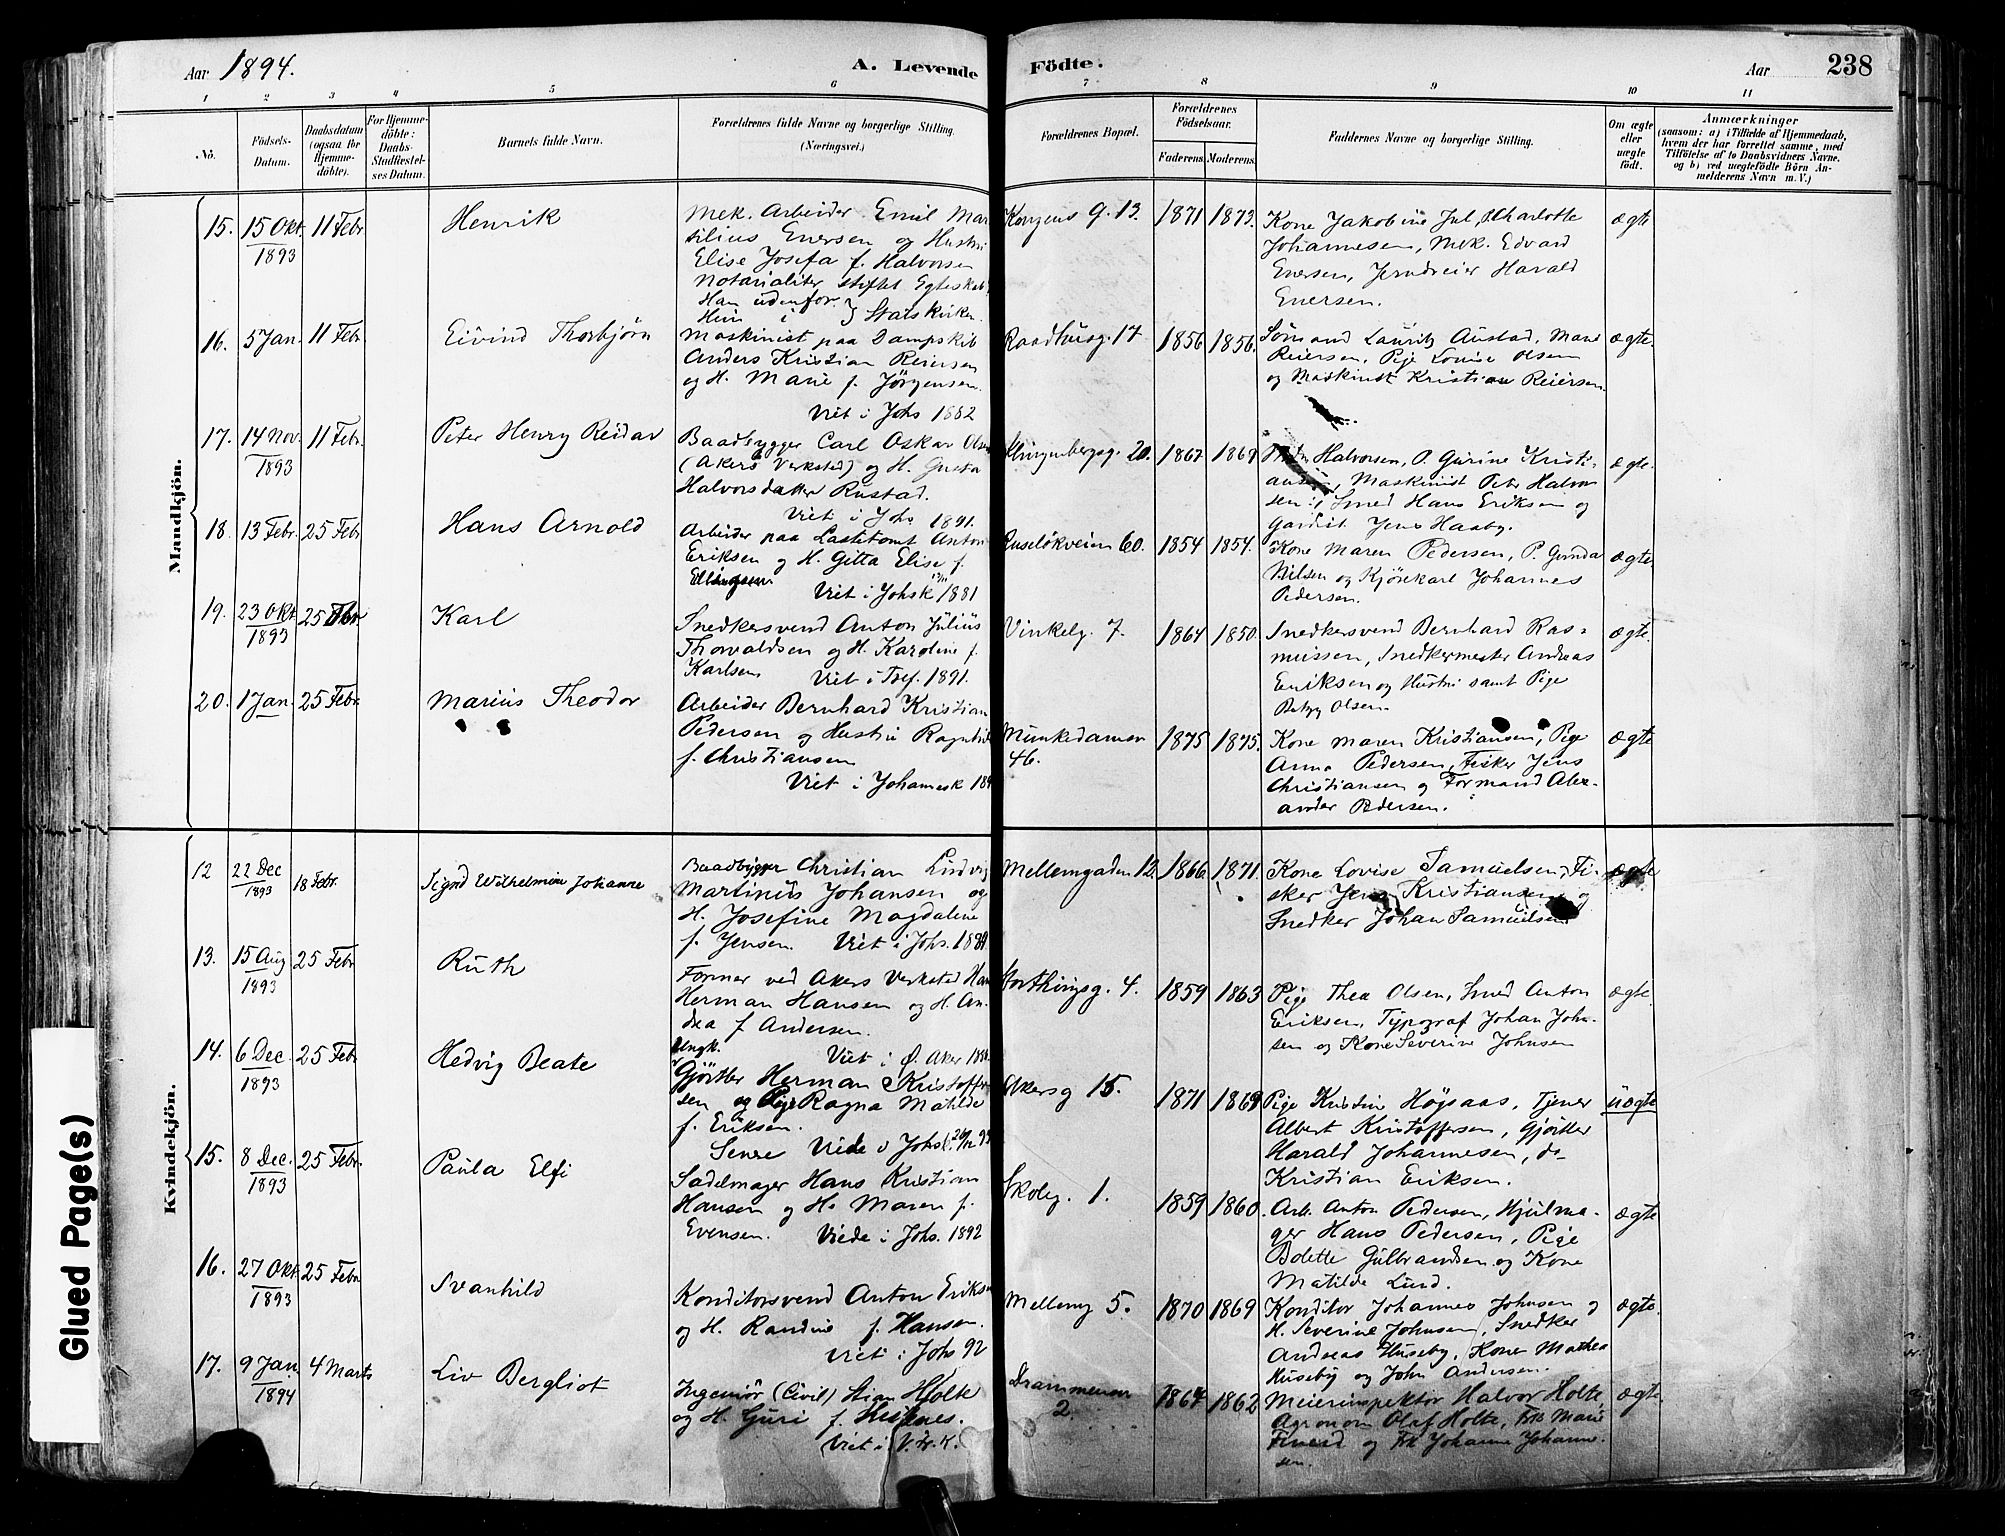 Aar 1894.
A. Levende
Födte.
Aar
238
1 2 3 4 5 6 7 8 9 10 11
No.
Födsels-
Datum.
Daabsdatum
(ogsaa for
Hjemme-
döbte).
For Hjemme-
döbte:
Daabs-
Stadfæstel-
ses Datum.
Barnets fulde Navn.
Forældrenes fulde Navne og borgerlige Stilling.
(Næringsvei.)
Forældrenes Bopæl.
Forældrenes
Födselsaar.
Faderens. Moderens.
Faddernes Navne og borgerlige Stilling.
Om ægte
eller
uægte
födt.
Anmærkninger
(saasom: a) i Tilfælde af Hjemmedaab,
hvem der har forrettet samme, med
Tilföielse af to Daabsvidners Navne.
og b) ved uægtefödte Börn An-
melderens Navn m. V.)
Mandkjön.
15. 15 Okt. 1893 11 Febr. Henrik
Mek. Arbeider Emil Mar
silius Enersen og Hustru
Elise Josefa f. Halvorsen
Notarialiter stiftet Egteskab
Han udenfor
Hun i } Statskirken.
Kongens g. 13. 1871 1873.
Kone Jakobine Jul, Charlotte
Johannesen, Mek. Edvard
Enersen, Jerndreier Harald
Enersen.
ægte
16. 5 Jan. 11 Febr. Eivind Thorbjörn
Maskinist paa Dampskib
Anders Kristian Reiersen
og H. Marie f. Jörgensen.
Viet i Johs 1882
Raadhusg. 17 1856 1856.
Sömand Lauritz Austad, Marie
Reiersen, Pige Louise Olsen
og Maskinist Kristian Reiersen
ægte.
17. 14 Nov. 1893 11 Febr. Peter Henry Reidar
Baadbygger Carl Oskar Olsen
(Akers Verksted) og H. Gusta
Halvorsdatter Rustad.
Viet i Johs 1891.
Klingenbergsg. 20. 1867 1869
Halvorsen, P. Gurine Kristi-
Maskinist Peter Halvor
sen, Smed Hans Eriksen og
Gardist Jens Haaby.
ægte.
18. 13 Febr. 25 Febr. Hans Arnold
Arbeider paa Lastetomt Anton
Eriksen og H. Gitta Elise f.
Ellingsen
Viet i Johsk 1881
Ruselökveien 60. 1854 1854.
Kone Maren Pedersen, P. Gunda
Nilsen og Kjörekarl Johannes
Pedersen.
ægte.
19. 23 Okt. 1893 25 Febr. Karl
Snedkersvend Anton Julius
Thorvaldsen og H. Karoline f.
Karlsen
Viet i Tref. 1891.
Vinkelg. 7. 1864 1850.
Snedkersvend Bernhard Ras-
mussen, Snedkermester Andreas
Eriksen og Hustru samt Pige
Olsen.
ægte.
20. 1 Jan. 25 Febr. Marius Theodor
Arbeider Bernhard Kristian
Pedersen og Hustru Ragnhild
f. Christiansen
Viet i Johannesk 189
Munkedamsv 1875 1875.
46.
Kone Maren Kristiansen, Pige
Anna Pedersen, Fisker Jens
Christiansen og Formand Alex-
ander Pedersen.
ægte
Kvindekjön.
12 22 Dec 1893 18 Febr. Signd Wilhelmine Johanne
Baadbygger Christian Ludvig
Martinius Johansen og
H. Josefine Magdalene
f. Jensen. Viet i Johs.
Mellemgaden 12. 1866 1871.
Kone Lovise Samuelsen, Fi-
sker Jens Kristiansen og
Snedker Johan Samuelsen
ægte
13. 15 Aug 1893 25 Febr. Ruth
Former ved Akers Verksted Hans
Herman Hansen og H. An-
dea f Andersen.
Viet i Ö. Aker
Storthingsg. 4. 1859 1863
Pige Thea Olsen, Smed Anton
Eriksen, Typograf Johan John-
sen og Kone Severine Johnsen
ægte.
14. 6 Dec. 1893 25 Febr Hedvig Beate
Ungk.
Gjörtler Herman Kristoffer
sen og Pige Ragna Matilde
f. Eriksen.
Senere Viede i Johs.
Akersg 15. 1871 1869
Pige Kristin Höjsaas, Tjener
Albert Kristoffersen, Gjörtler
Harald Johannesen, do
Kristian Eriksen.
uægte
15. 8 Dec. 1893 25 Febr. Paula Elfi
Sadelmager Hans Kristian
Hansen og H. Maren f.
Evensen. Viede i Johs. 1892
Skoleg. 1. 1859 1860.
Arb. Anton Pedersen, Hjulma-
ger Hans Pedersen, Pige
Bolette Gulbrandsen og Kone
Matilde Lund.
ægte
16. 27 Okt. 1893 25 Febr Svanhild
Konditorsvend Anton Eriksen
og H. Randine f. Hansen.
Viet i Johs 92
Mellemg 5. 1870 1869
Konditor Johannes Johnsen og
H. Severine Johnsen, Snedker
Andreas Huseby, Kone Mathea
Huseby og John Andersen.
ægte.
17. 9 Jan. 1894 4 Marts Liv Bergliot
Ingeniör (Civil) Stian Holte
og H. Guri f.
Viet i V. Fr. K.
Drammensv 1864 1862
2.
Meieriinspektör Halvor Holte,
Agronom Olaf Holte, Frk Marie
og Frk Johanne Johanne-
sen.
ægte.
Glued Page(s)